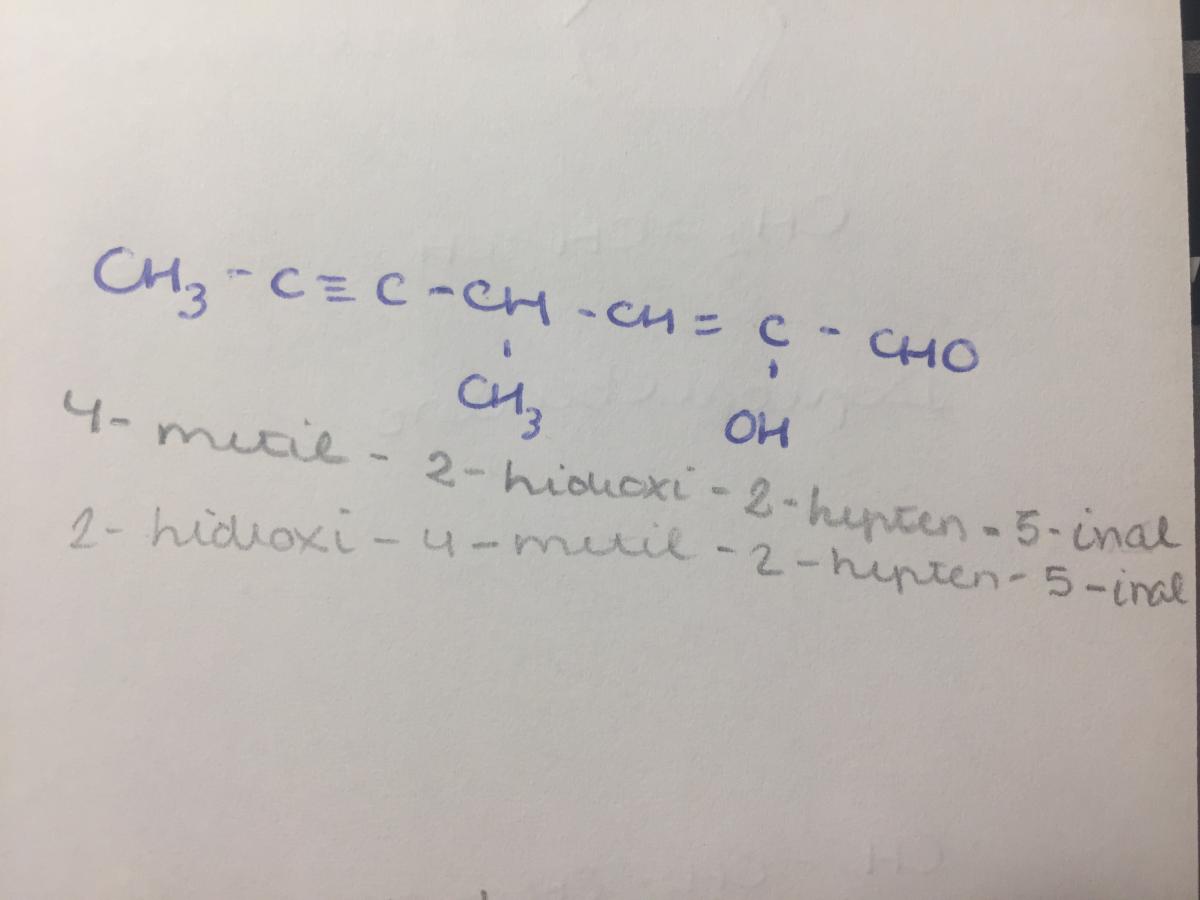 CH₃ - C ≡ C - CH - CH = C - CHO
CH₃ OH
4- metil - 2 - hidroxi - 2 - hepten - 5 - inal
2 - hidroxi - 4 - metil - 2 - hepten - 5 - inal